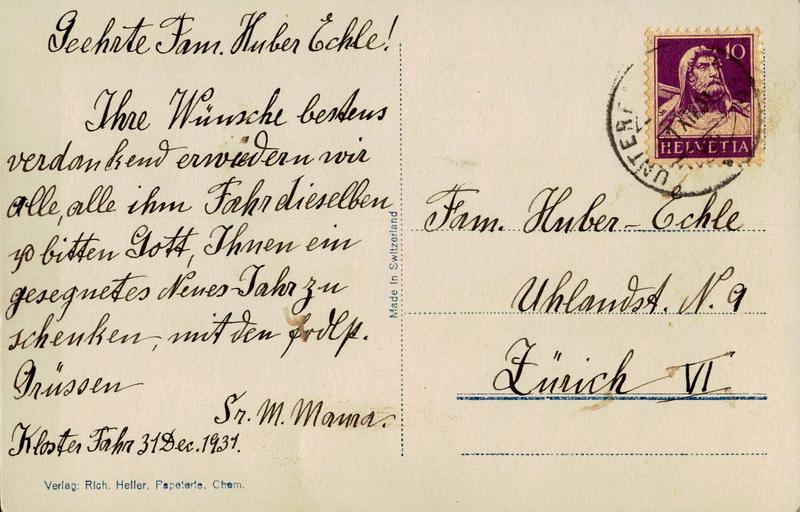 Geehrte Fam. Huber Echle!
Ihre Wünsche bestens
verdankend erwiedern wir
alle, alle ihm Fahr dieselben
u bitten Gott, Ihnen ein
gesegnetes Neues-Jahr zu
schenken, mit den frdlp.
Grüssen
Sr. M. Maura.
Kloster Fahr 31 Dec. 1931.
Verlag: Rich. Heller, Papeterie, Cham.
Made in Switzerland
10
HELVETIA
UNTER
Fam. Huber-Echle
Uhlandst. N. 9
Zürich VI.